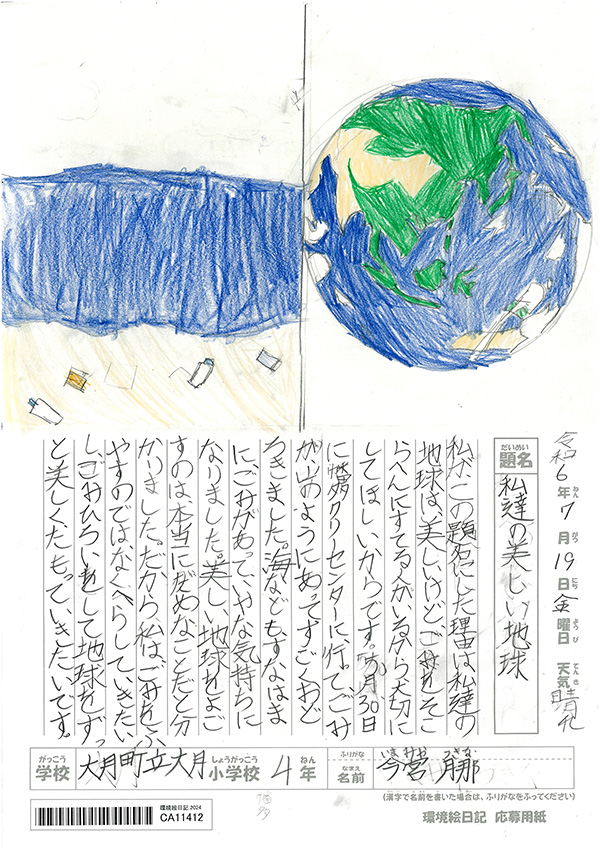 令和6年7月19日金曜日 天気晴れ
ねん がつ にち ようび てんき
だいめい
題名 私達の美しい地球
私がこの題名にした理由は私達の
地球は、美しいけど、ごみをそこ
らへんにすてる人がいるから大切に
してほしいからです。 月、30日
に幡多クリーセンターに行ってごみ
が山のようにあってすごくおど
ろきました。海などもすなはま
にごみがあって、いやな気持ちに
なりました。美しい地球をよご
すのは本当にだめなことだと分
かりました。だから、私はごみをふ
やすのではなくへらしていきたい
し、ごみひろいをして地球をずっ
と美しく、たもっていきたいです。
がっこう しょうがっこう ねん
学校 大月町立大月小学校 4年
ふりがな いまみや つきな
なまえ
名前 今宮 月那
(漢字で名前を書いた場合は、ふりがなをふってください)
環境絵日記 2024
CA11412
環境絵日記 応募用紙